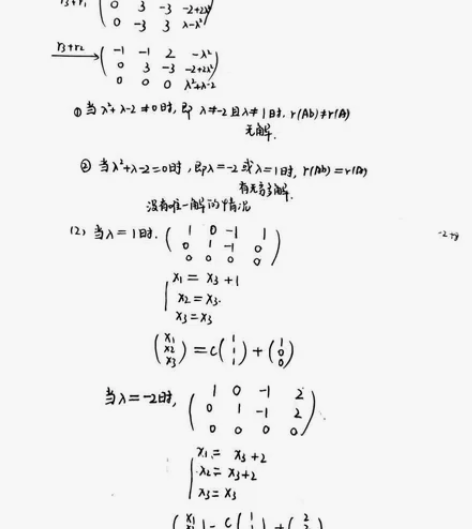 r₃+r₁ ( 0 3 -3 -2+2λ²
0 -3 3 λ-λ² )
r₃+r₂ → ( -1 -1 2 -λ²
0 3 -3 -2+2λ²
0 0 0 λ²+λ-2 )
① 当λ²+λ-2≠0时,即 λ≠-2且λ≠1时. r(Ab)≠r(A)
无解.
② 当λ²+λ-2=0时,即λ=-2或λ=1时, r(Ab)=r(A)
有无穷多解.
没有唯一解的情况
(2) 当λ=1时. ( 1 0 -1 1
0 1 -1 0
0 0 0 0 )
x₁ = x₃+1
x₂ = x₃.
x₃ = x₃
(x₁ x₂ x₃) = c(1 1 1) + (1 0 0)
当λ=-2时, ( 1 0 -1 2
0 1 -1 2
0 0 0 0 )
x₁ = x₃+2
x₂ = x₃+2
x₃ = x₃